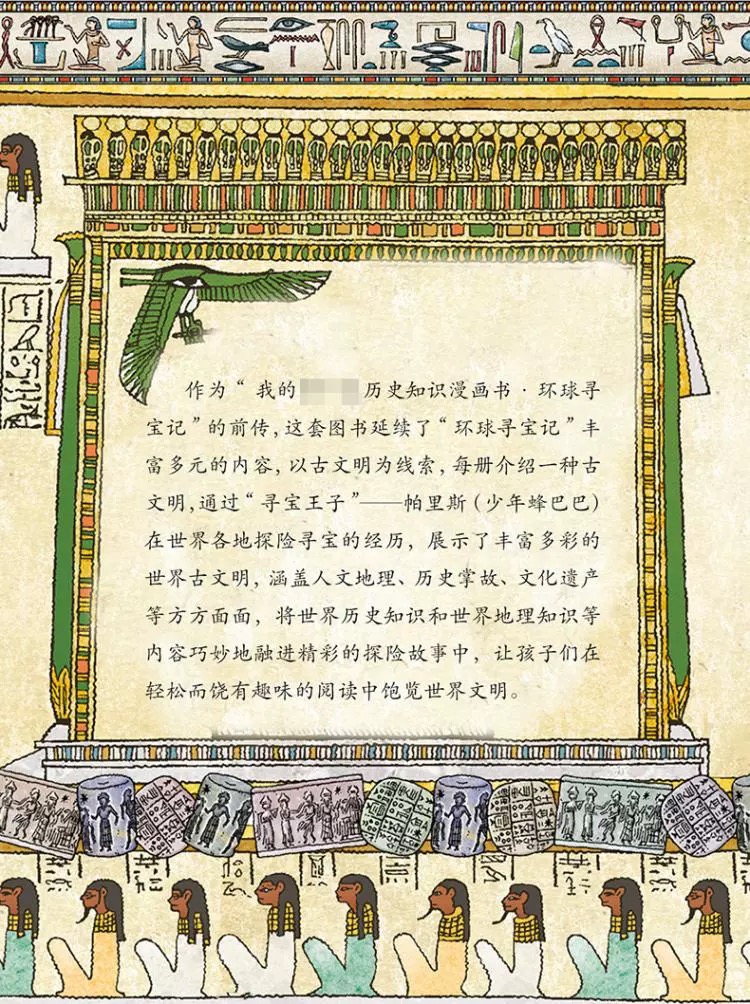 作为“我的 历史知识漫画书·环球寻
宝记”的前传，这套图书延续了“环球寻宝记”丰
富多元的内容，以古文明为线索，每册介绍一种古
文明，通过“寻宝王子”——帕里斯（少年蜂巴巴）
在世界各地探险寻宝的经历，展示了丰富多彩的
世界古文明，涵盖人文地理、历史掌故、文化遗产
等方方面面，将世界历史知识和世界地理知识等
内容巧妙地融进精彩的探险故事中，让孩子们在
轻松而饶有趣味的阅读中饱览世界文明。